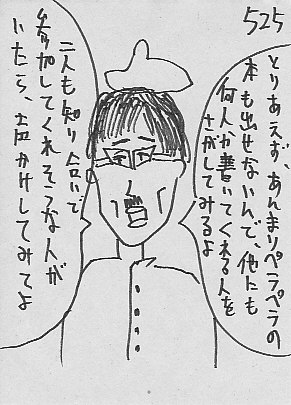 525
とりあえず、あんまりペラペラの
本も出せないんで、他にも
何人か書いてくれる人を
さがしてみるよ
二人も知り合いで
参加してくれそうな人が
いたら、声かけしてみてよ